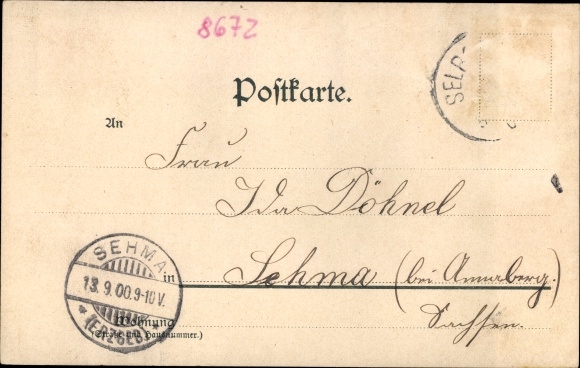 8672
Postkarte.
SELB
An
Frau
Ida Döhnel
in Sehma (bei Annaberg.)
Sachsen.
SEHMA
13.9.00.9-10V.
* (ERZGEB.)
Wohnung
(Straße und Hausnummer.)